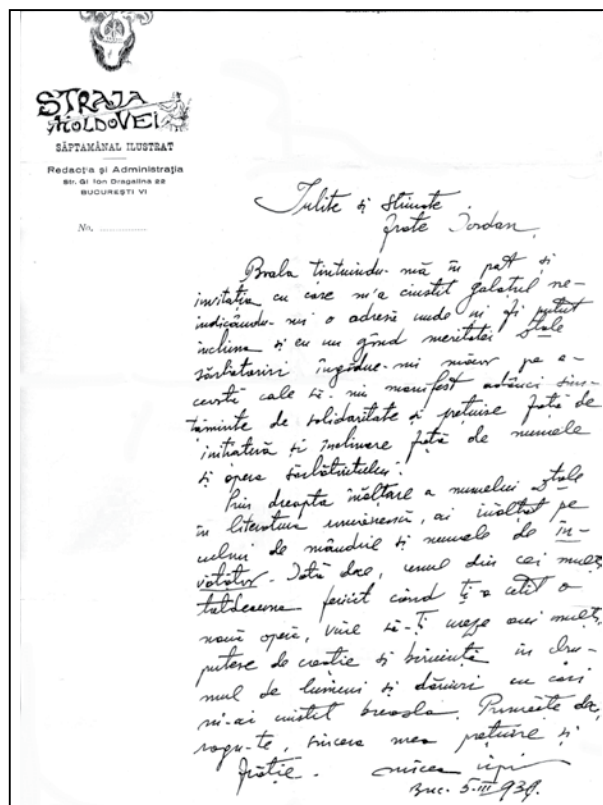 STRAJA
MOLDOVEI
SĂPTAMÂNAL ILUSTRAT
Redacția și Administrația
Str. Gl Ion Dragalina 22
BUCUREȘTI VI
No.
Iubite și stimate
frate Iordan,
Boala țintuindu-mă în pat și
invitația cu care m'a cinstit Galațul ne-
indicându-mi o adresă unde mi-aș fi putut
închina și eu un gând meritatei D-tale
sărbătoriri îngădue-mi măcar pe a-
ceastă cale să-mi manifest adânci sim-
țăminte de solidaritate și prețuire față de
inițiativă și închinare față de numele
și opera sărbătoritului.
Prin dreapta înălțare a numelui D-tale
în literatura românească, ai înălțat pe
culmi de mândrie și numele de în-
vățător. Iată dece, unul din cei mulți
totdeauna fericit când ți-a cetit o
nouă operă, vine să-ți ureze ani mulți,
putere de creație și biruință în dru-
mul de lumini și dăruiri cu cari
ne-ai cinstit breasla. Primește da,
rogu-te, sincera mea prețuire și
frăție. Mircea
Buc. 5-III 939.